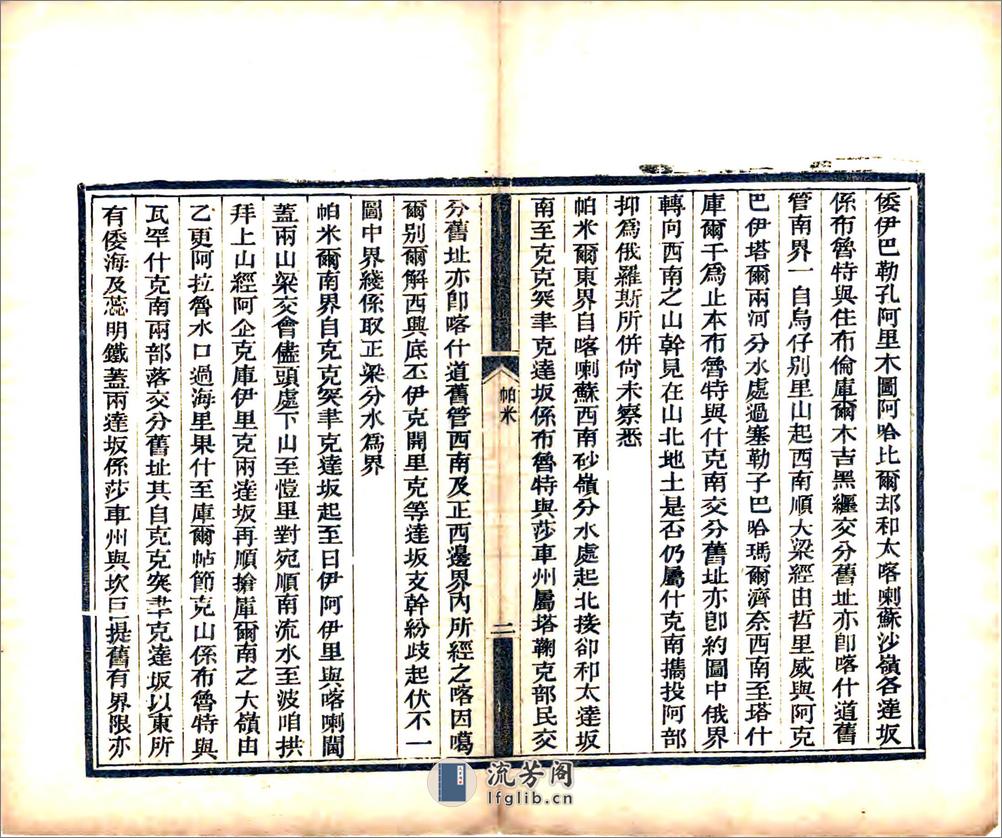 倭伊巴勒孔阿里木圖阿哈比爾却和太喀喇蘇沙嶺各達坂
係布魯特與住布倫庫爾木吉黑繼交分舊址亦卽喀什道舊
管南界一自烏仔别里山起西南順大梁經由哲里威與阿克
巴伊塔爾兩河分水處過塞勒子巴哈瑪爾濟奈西南至塔什
庫爾干爲止本布魯特與什克南交分舊址亦卽約圖中俄界
轉向西南之山幹見在山北地土是否仍屬什克南攜投阿部
抑爲俄羅斯所併尙未察悉
帕米爾東界自喀喇蘇西南砂嶺分水處起北接卻和太達坂
南至克克突聿克達坂係布魯特與莎車州屬塔鞠克部民交
帕米
二
分舊址亦卽喀什道舊管西南及正西邊界內所經之喀因噶
爾别爾解西興底丕伊克開里克等達坂支幹紛歧起伏不一
圖中界綫係取正梁分水爲界
帕米爾南界自克克突聿克達坂起至日伊阿伊里與喀喇闐
蓋兩山梁交會儘頭處下山至愷里對宛順南流水至波咱拱
拜上山經阿企克庫伊里克兩達坂再順搶庫爾南之大嶺由
乙更阿拉魯水口過海里果什至庫爾帖節克山係布魯特與
瓦罕什克南兩部落交分舊址其自克克突聿克達坂以東所
有倭海及蕊明鐵蓋兩達坂係莎車州與坎巨提舊有界限亦
流芳阁
lfglib.cn